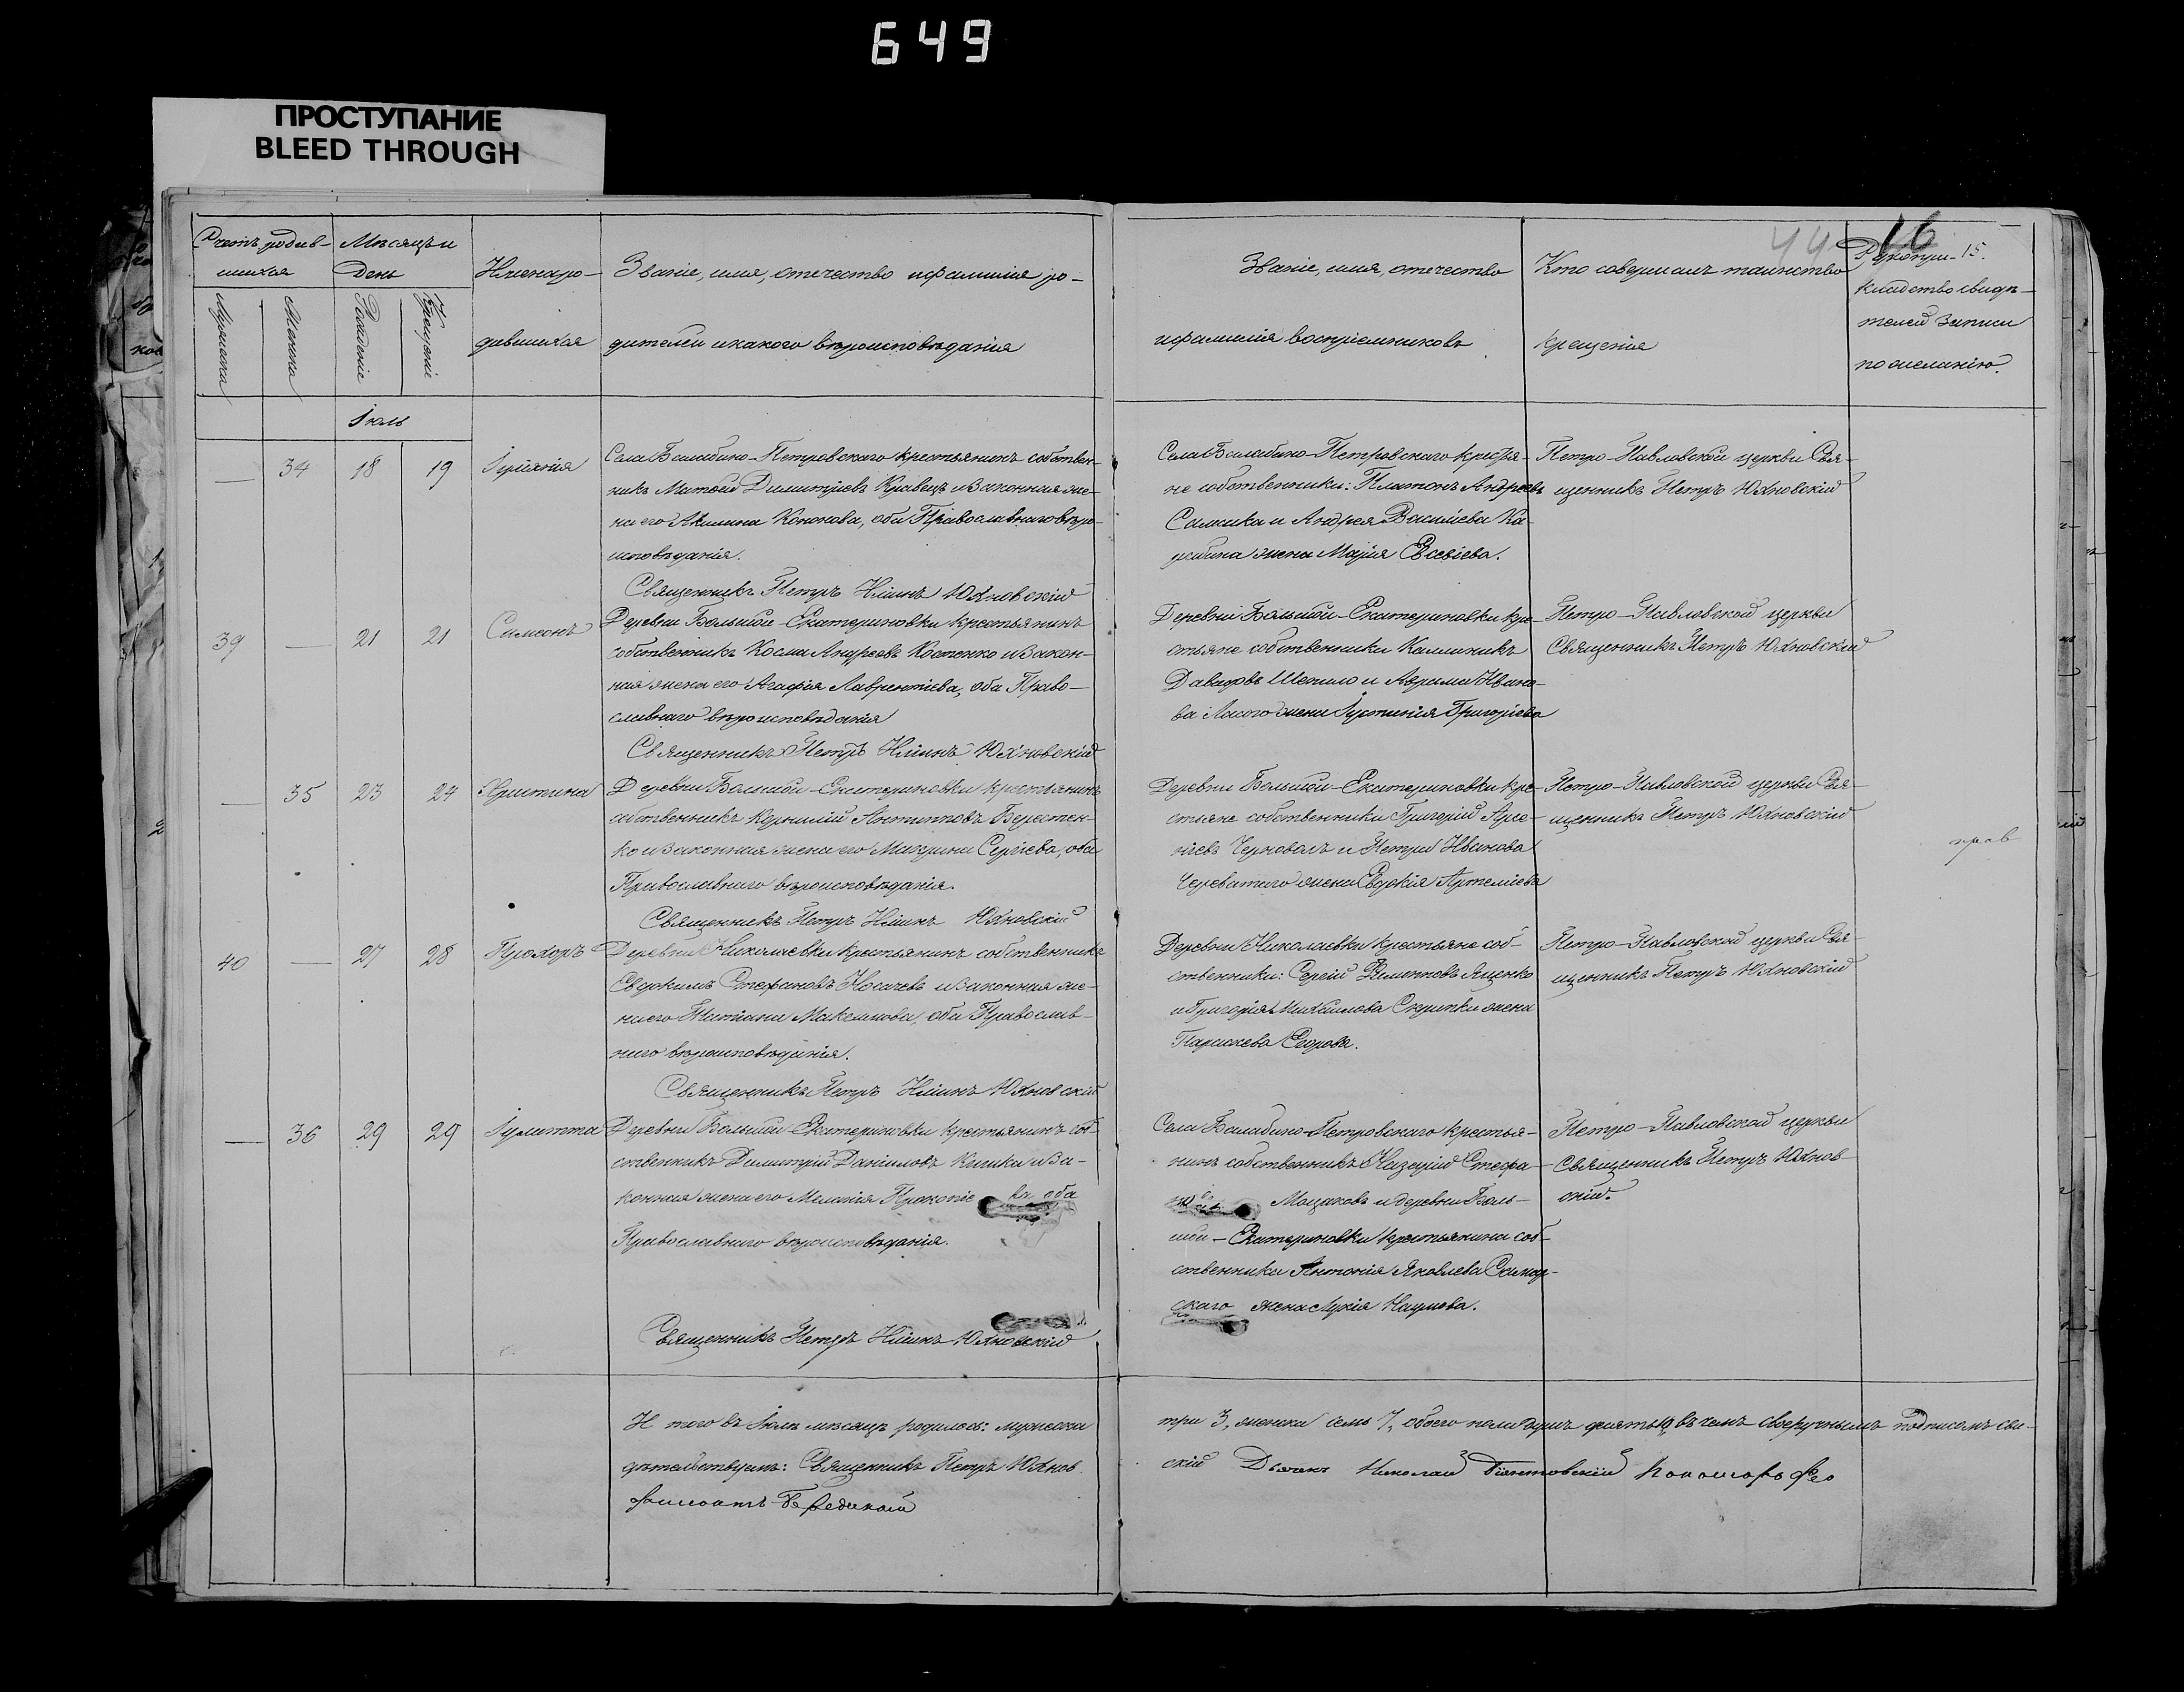 649
ПРОСТУПАНИЕ
BLEED THROUGH
44 16
Счетъ родив-
шихся
Мѣсяцъ и
День
Мужеска
Женска
Рожденіе
Крещеніе
Имена ро-
дившихся
Званіе, имя, отечество и фамилія ро-
дителей и какого вѣроисповѣданія
Званіе, имя, отечество
и фамилія воспріемниковъ
Кто совершалъ таинство
крещенія
Рукопри- 15.
кладство свидѣ-
телей записи
по желанію.
Іюль
— 34 18 19 Іуліанія
Села Балабино-Петровскаго крестьянинъ собствен-
никъ Матѳей Димитріевъ Кравецъ и законная же-
на его Акилина Кононова, оба Православнаго вѣро-
исповѣданія.
Священникъ Петръ Юхновскій
Села Балабино-Петровскаго крестья-
не собственники: Платонъ Андреевъ
и Андрея Васильева Ка-
жена Марія Евсевіева.
Петро-Павловской церкви Свя-
щенникъ Петръ Юхновскій
39 — 21 21 Симеонъ
Деревни Большой-Екатериновки крестьянинъ
собственникъ Косма Андреевъ Костенко и закон-
ная жена его Агафія Лаврентіева, оба Право-
славнаго вѣроисповѣданія
Священникъ Петръ Юхновскій
Деревни Большой-Екатериновки кре-
стьяне собственники Каллиникъ
Давидовъ Шепило и Аврама Ивано-
ва Лысого жена Іустинія Григоріева
Петро-Павловской церкви
Священникъ Петръ Юхновскій
— 35 23 24 Христина
Деревни Большой-Екатериновки крестьянинъ
собственникъ Корнилій Антиповъ Берестен-
ко и законная жена его Макрина Сергіева, оба
Православнаго вѣроисповѣданія.
Священникъ Петръ Юхновскій
Деревни Большой-Екатериновки кре-
стьяне собственники Григорій Арсе-
ніевъ Черноволъ и Петра Иванова
Череватого жена Евдокія Артеміева
Петро-Павловской церкви Свя-
щенникъ Петръ Юхновскій
прав
40 — 27 28 Прохоръ
Деревни Николаевки крестьянинъ собственникъ
Евдокимъ Стефановъ Носачевъ и законная же-
на его Татіана Максимова, оба Православ-
наго вѣроисповѣданія.
Священникъ Петръ Юхновскій
Деревни Николаевки крестьяне соб-
ственники: Сергій Яценко
и Григорія Михайлова Скрипки жена
Параскева Егорова.
Петро-Павловской церкви Свя-
щенникъ Петръ Юхновскій
— 36 29 29 Іулитта
Деревни Большой Екатериновки крестьянинъ соб-
ственникъ Димитрій Даніиловъ Кишка и за-
конная жена его Меланія Прокопіе ва оба
Православнаго вѣроисповѣданія.
Священникъ Петръ Юхновскій
Села Балабино-Петровскаго крестья-
нинъ собственникъ Назарій Стефа-
новъ Мацаковъ и деревни Боль-
шой-Екатериновки крестьянина соб-
ственника Антонія Яковлева Самар-
скаго жена Лукія Наумова.
Петро-Павловской церкви
Священникъ Петръ Юхнов-
скій.
И того въ Іюлѣ мѣсяцѣ родилось: мужеска
три 3, женска семь 7, обоего пола душъ десять 10, въ чемъ своеручнымъ подписомъ сви-
дѣтельствуемъ: Священникъ Петръ Юхнов
скій Дьячекъ Николай Пономарь Фео